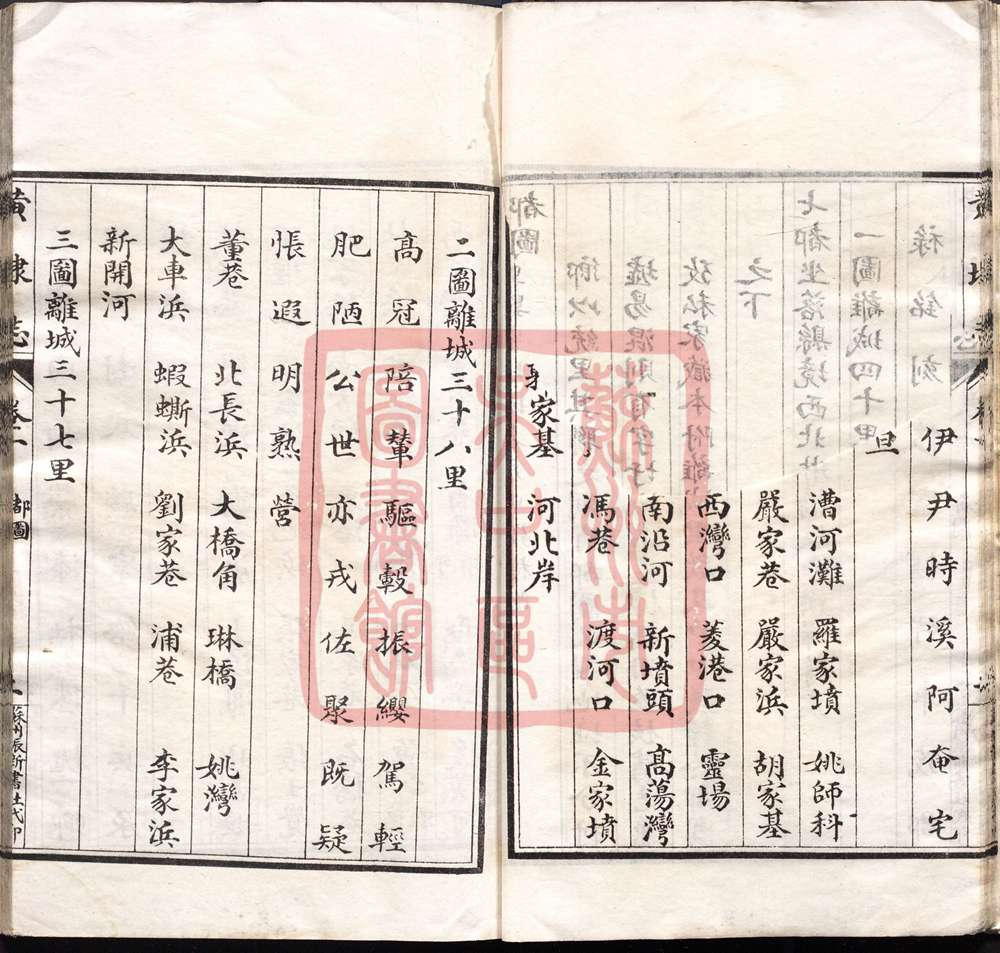 伊尹時溪阿奄宅
旦
漕河灘 羅家墳 姚師科
嚴家巷 嚴家浜 胡家基
西灣口 菱港口 靈場
南沿河 新墳頭 高蕩灣
馮巷 渡河口 金家墳
家基 河北岸
二圖離城三十八里
高冠陪輦驅轂振纓駕輕
肥陋公世亦戎佐聚既疑
悵遐明熟營
董巷 北長浜 大橋角 琳橋 姚灣
大車浜 蝦蟖浜 劉家巷 浦巷 李家浜
新開河
三圖離城三十七里
黃埭志 卷一 都圖
蘇州振新書社代印
蘇州市
吳中區
圖書館